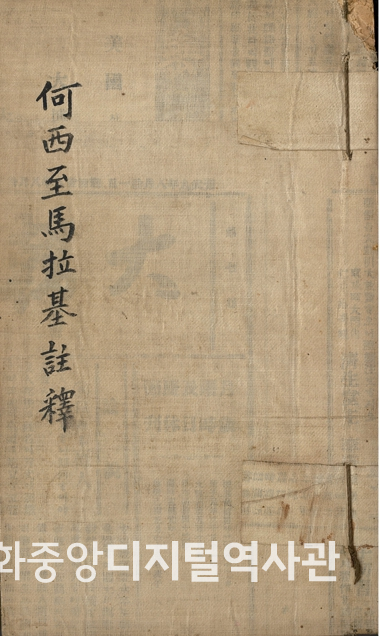 何西至馬拉基註釋
화중앙디지털역사관